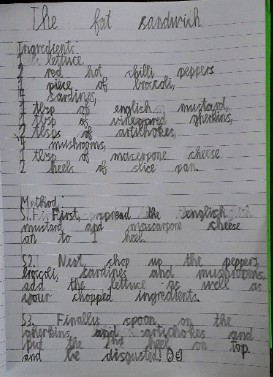 The fat sandwich
Ingredients:
lettuce
2 red hot chilli peppers
1 piece of broccoli,
sardines,
1 tbsp of english mustard,
1 tbsp of gherkins,
2 tbsps of artichokes,
mushrooms,
1 tbsp of mascarpone cheese
2 heels of slice pan.
Method:
S1. First, spread the english
mustard and mascarpone cheese
on to 1 heel.
S2. Next, chop up the peppers,
broccoli, sardines and mushrooms,
add the lettuce as well as
your chopped ingredients.
S3. Finally spoon on the
gherkins and artichokes and
put the 2nd heel on top
and be disgusted!